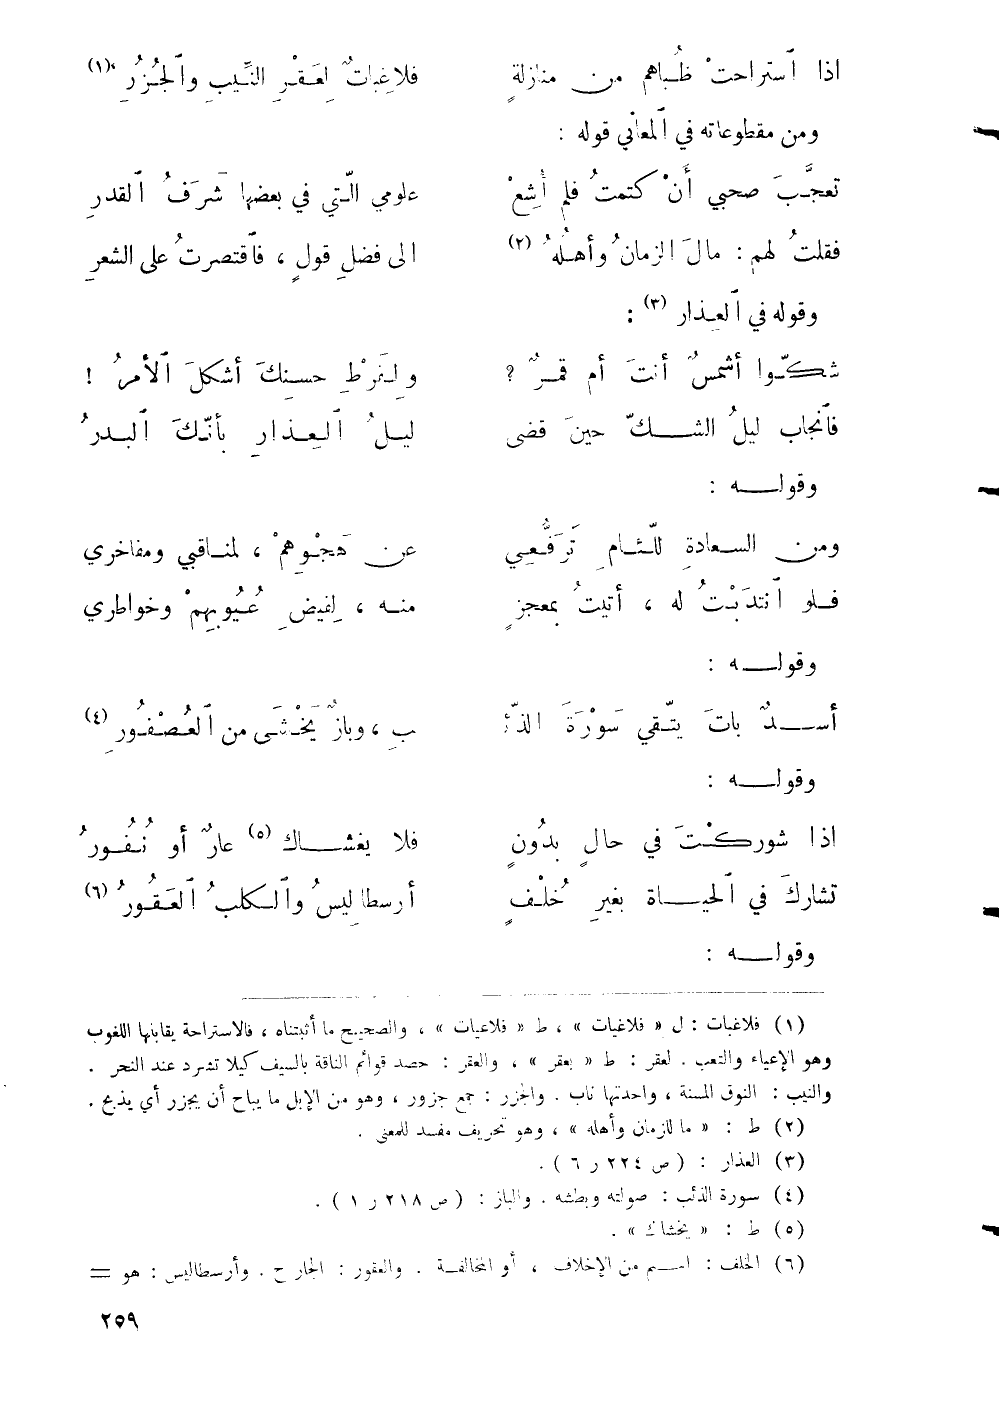 اذا ٱستراحتْ ظُباهم من منازلةٍ فلاغباتٌ لعَقْرِ النِّيبِ وٱلجُزُرِ (١)
ومن مقطوعاته في ٱلمعاني قوله :
تعجَّبَ صحبي أَنْ كتمتُ فلم أُشِعْ علومي الّتي في بعضها شرَفُ ٱلقدرِ
فقلتُ لهم : مالَ الزمانُ وأهلُهُ (٢) الى فضلِ قولٍ ، فٱقتصرتُ على الشعرِ
وقوله في ٱلعِذار (٣) :
شكّوا أشمسٌ أنتَ أم قمرٌ ؟ ولفَرْطِ حسنِكَ أشكلَ ٱلأمرُ !
فٱنجاب ليلُ الشكّ حينَ قضى ليلُ ٱلعِذارِ بأنّكَ ٱلبدرُ
وقوله :
ومن السعادةِ للّئامِ تَرَفُّعِي عن هَجْوِهمْ ، لمناقبي ومفاخري
فلو ٱنتدَبْتُ له ، أتيتُ بمعجزٍ منه ، لِفيضِ عُيُوبِهِمْ وخواطري
وقوله :
أسدٌ باتَ يتّقي سَوْرَةَ الذّئْبِ ، وبازٌ يَخْشَى من ٱلعُصْفُورِ (٤)
وقوله :
اذا شوركْتَ في حالٍ بدُونٍ فلا يغشاك (٥) عارٌ أو نُفُورُ
تشاركَ في ٱلحياة بغيرِ خُلْفٍ أرسطاليسُ وٱلكلبُ ٱلعَقُورُ (٦)
وقوله :
(١) فلاغبات : ل « فلاغيات » ، ط « فلاعيات » ، والصحيح ما أثبتناه ، فالاستراحة يقابلها اللغوب
وهو الإعياء والتعب . لعقر : ط « بعقر » ، والعقر : حصد قوائم الناقة بالسيف كيلا تشرد عند النحر .
والنيب : النوق المسنة ، واحدتها ناب . والجزر : جمع جزور ، وهو من الإبل ما يباح أن يجزر أي يذبح .
(٢) ط : « ما للزمان وأهله » ، وهو تحريف مفسد للمعنى .
(٣) العذار : ( ص ٢٢٤ ر ٦ ) .
(٤) سورة الذئب : صولته وبطشه . والباز : ( ص ٢١٨ ر ١ ) .
(٥) ط : « يخشاك » .
(٦) الخلف : اسم من الإخلاف ، أو المخالفة . والعقور : الجارح . وأرسطاليس : هو =
٢٥٩